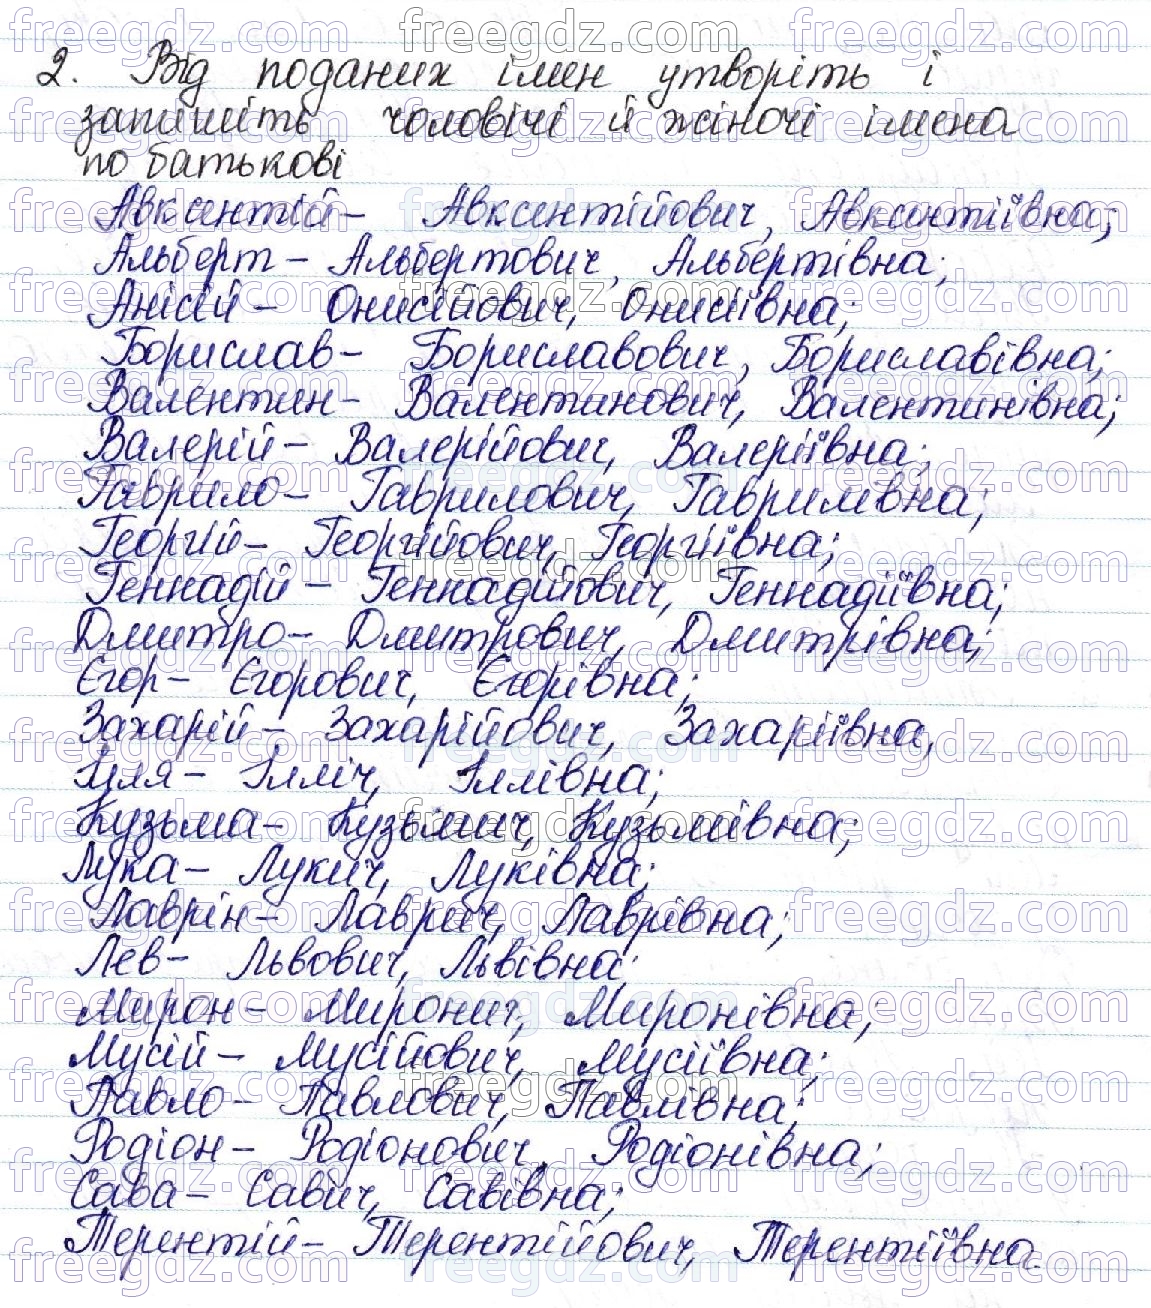 2. Від поданих імен утворіть і
запишіть чоловічі й жіночі імена
по батькові
Авксентій - Авксентійович, Авксентіївна;
Альберт - Альбертович, Альбертівна;
Анісій - Онисійович, Онисіївна;
Борислав - Бориславович, Бориславівна;
Валентин - Валентинович, Валентинівна;
Валерій - Валерійович, Валеріївна;
Гаврило - Гаврилович, Гаврилівна;
Георгій - Георгійович, Георгіївна;
Геннадій - Геннадійович, Геннадіївна;
Дмитро - Дмитрович, Дмитрівна;
Єгор - Єгорович, Єгорівна;
Захарій - Захарійович, Захаріївна,
Ілля - Ілліч, Іллівна;
Кузьма - Кузьмич, Кузьмівна;
Лука - Лукич, Луківна;
Лаврін - Лаврич, Лаврівна;
Лев - Львович, Львівна;
Мирон - Миронич, Миронівна;
Мусій - Мусійович, Мусіївна;
Павло - Павлович, Павлівна;
Родіон - Родіонович, Родіонівна;
Сава - Савич, Савівна;
Терентій - Терентійович, Терентіївна.